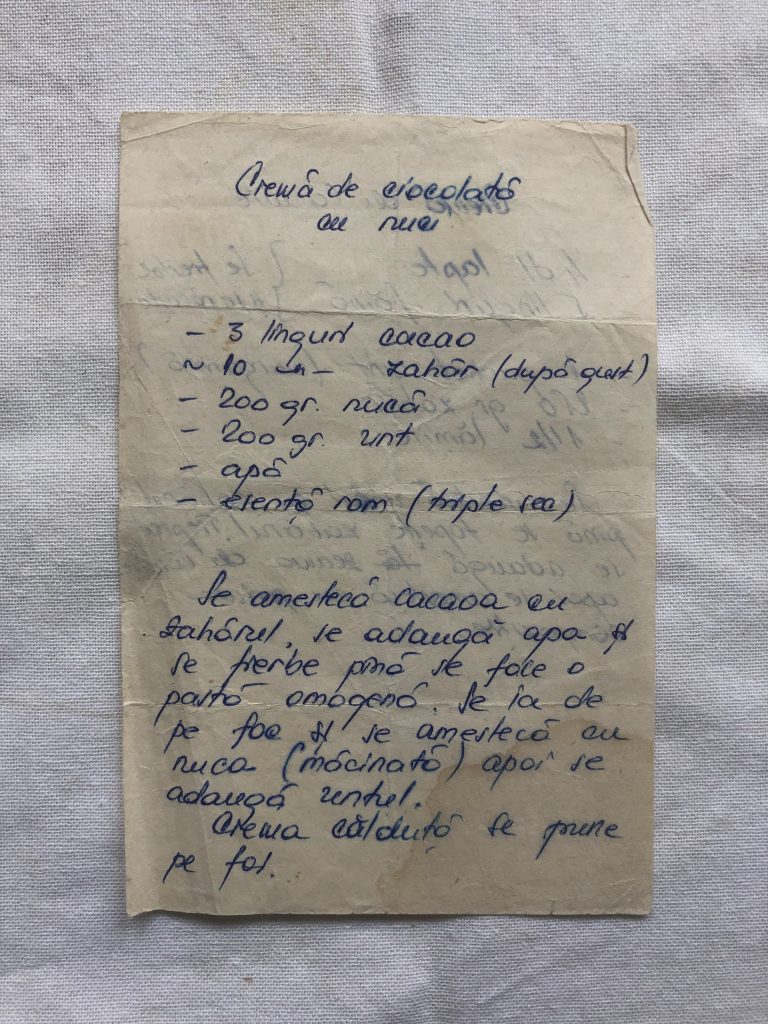 Cremă de ciocolată
cu nuci
- 3 linguri cacao
~ 10 -"- zahăr (după gust)
- 200 gr. nucă
- 200 gr. unt
- apă
- esență rom (triple sec)
Se amestecă cacaoa cu
zahărul, se adaugă apa și
se fierbe pînă se face o
pastă omogenă. Se ia de
pe foc și se amestecă cu
nuca (măcinată) apoi se
adaugă untul.
Crema călduță se pune
pe foi.